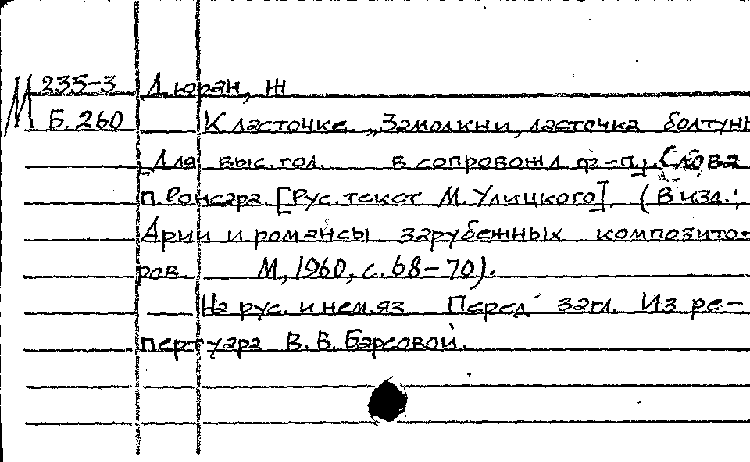 М 235-3 Дюран, Ж
Б. 260 К ласточке. „Замолкни, ласточка болтунь
Для выс. гол. в сопровожд ф-п. Слова
П. Ронсара. [Рус. текст М. Улицкого]. (В изд.:
Арии и романсы зарубежных композито-
ров. М, 1960, с. 68-70).
На рус. и нем. яз Перед загл. Из ре-
пертуара В. В. Барсовой.